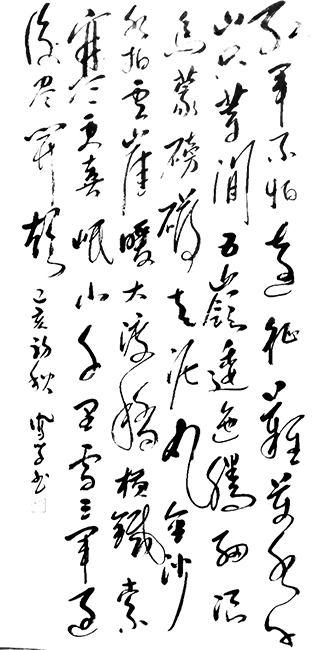 红军不怕远征难万水千
山只等闲五岭逶迤腾细浪
乌蒙磅礴走泥丸金沙
水拍云崖暖大渡桥横铁索
寒更喜岷山千里雪三军过
后尽开颜 己亥初秋 书